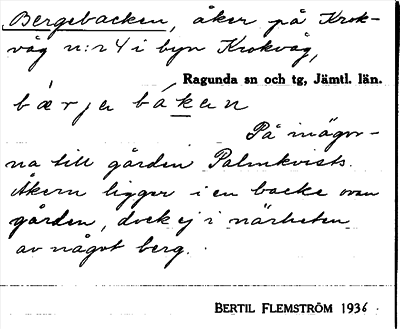 Bergebacken, åker på Krok-
våg n:r 4 i byn Krokvåg,
Ragunda sn och tg, Jämtl. län.
bærje báken
På inägor-
na till gården Palmkvists.
Åkern ligger i en backe ovan
gården, dock ej i närheten
av något berg.
BERTIL FLEMSTRÖM 1936